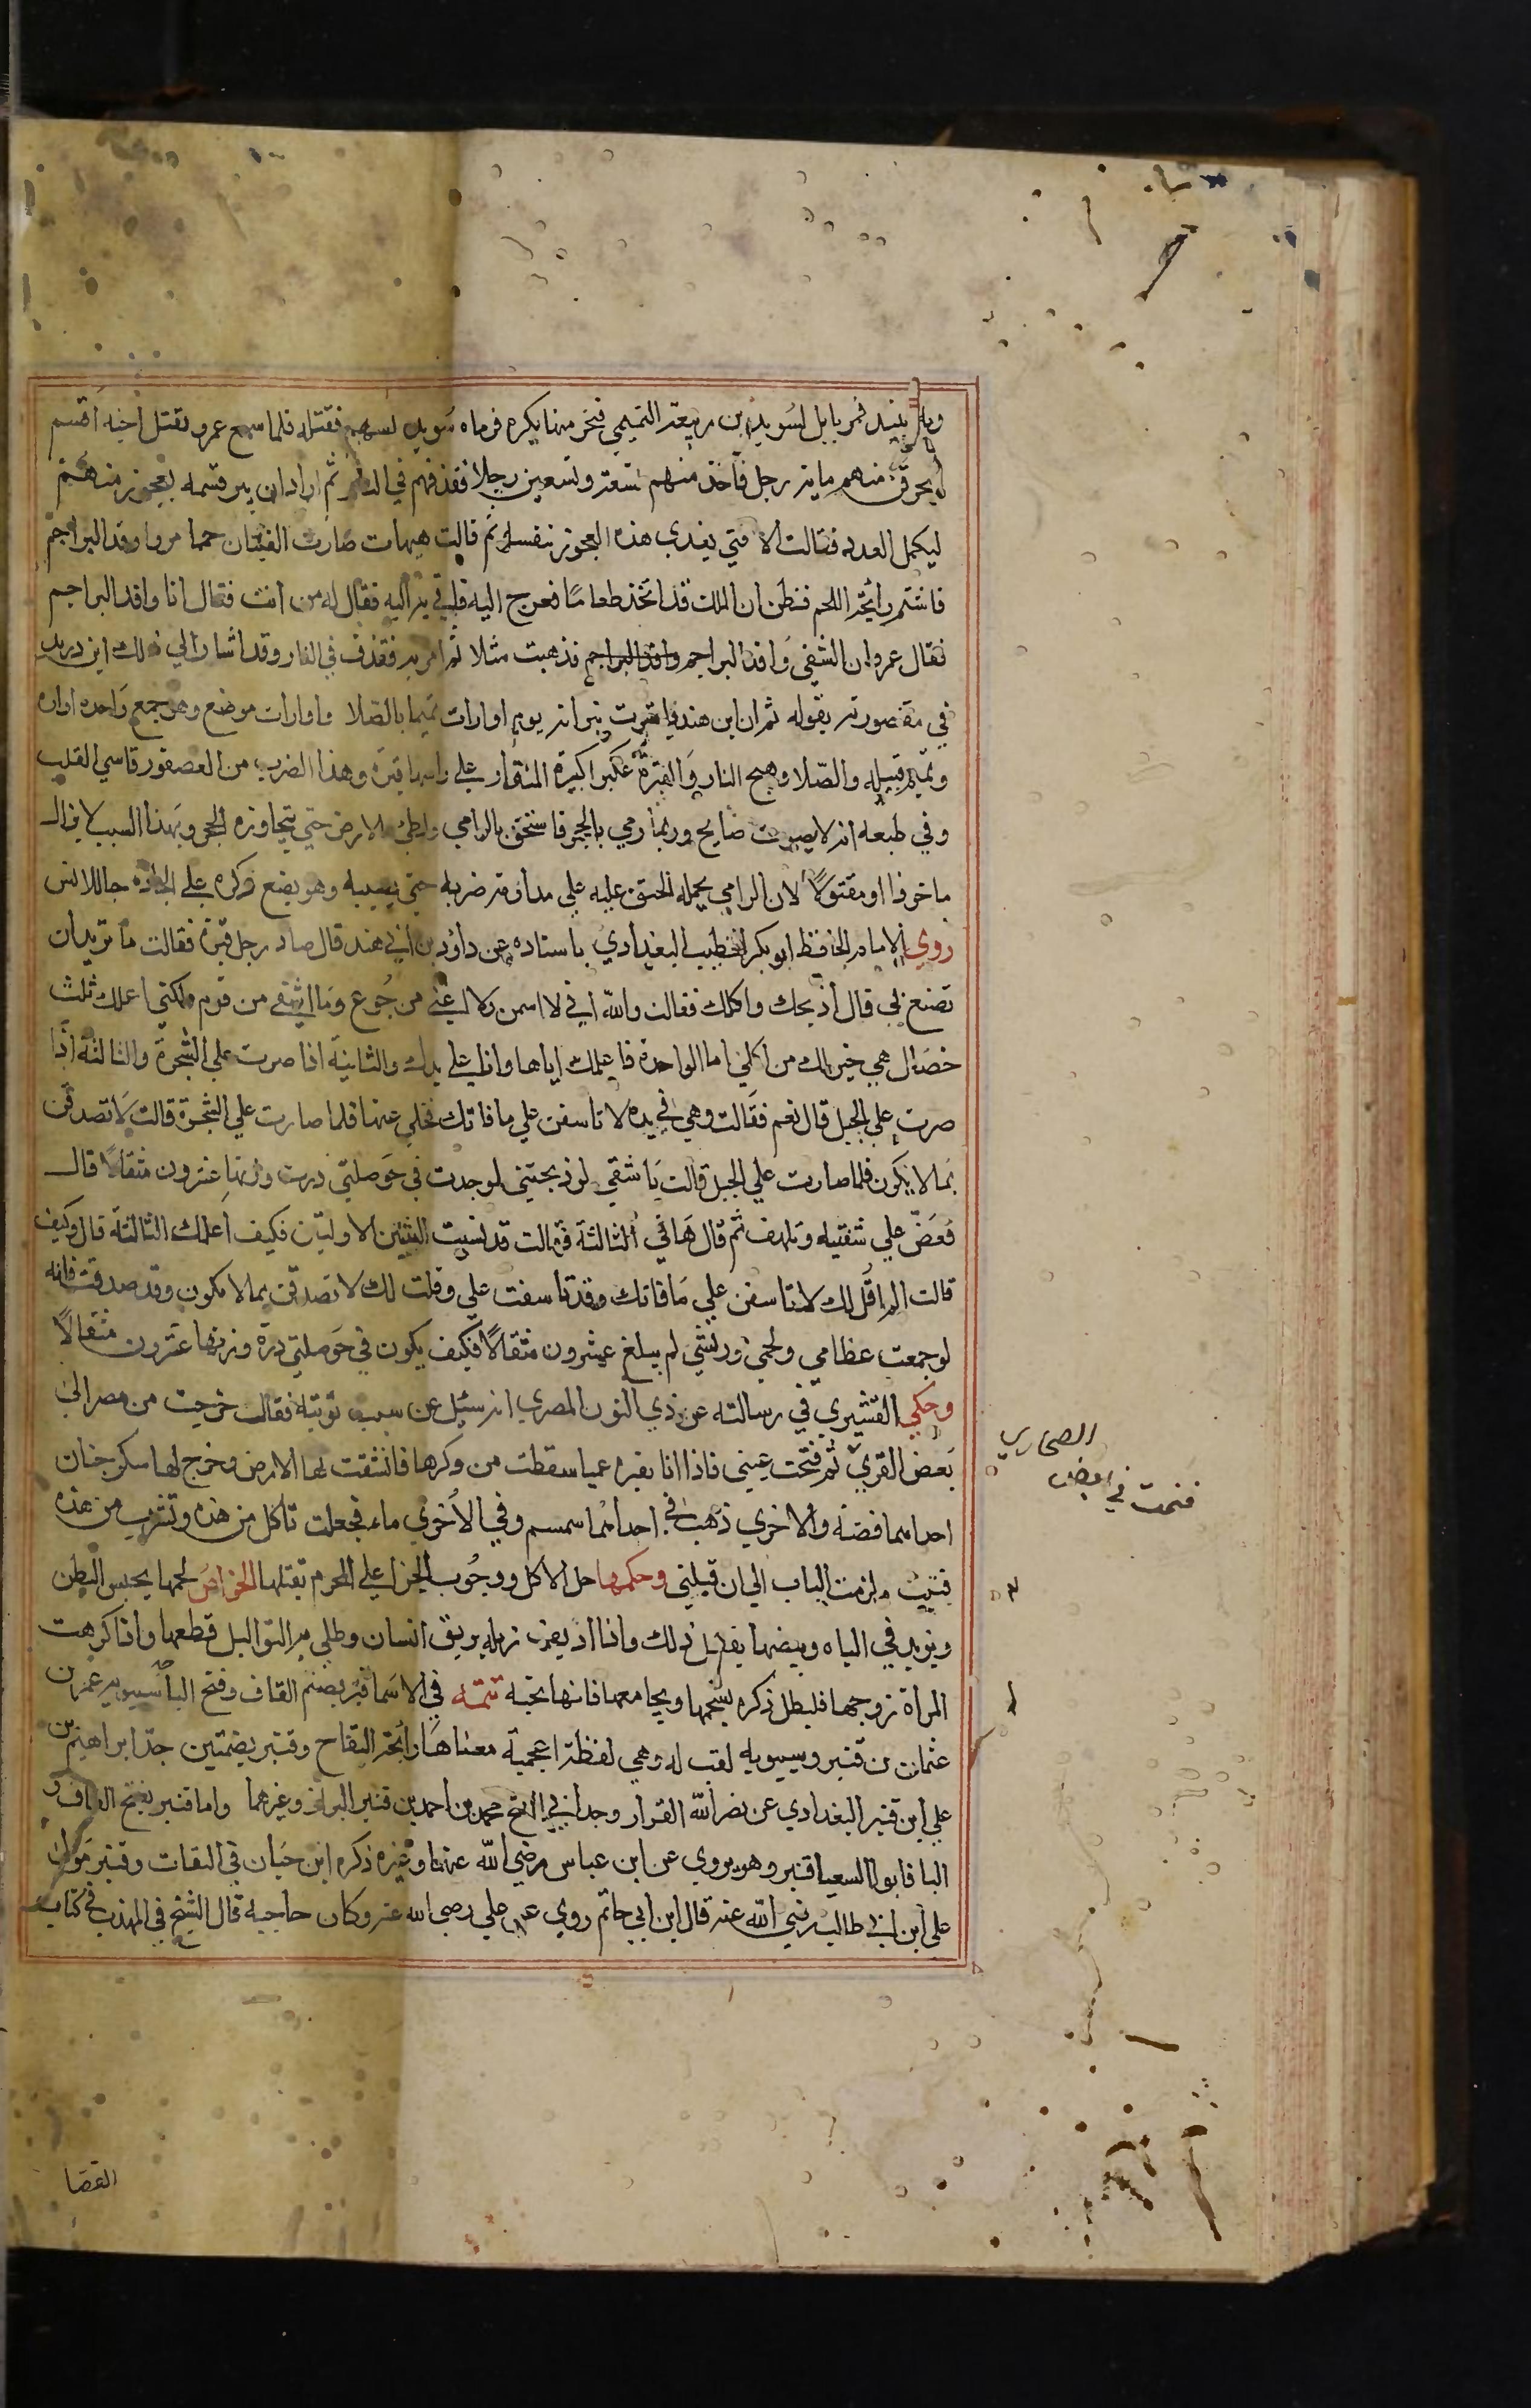 وبه ينبذ فمر بابل لسُويد ابن ربيعة التميمي فنحر منها بكره فرماه سُويد بسهم فقتله فلما سمع عمرو بقتل اخيه اقسم
ليحرقن منهم ماية رجل فاخذ منهم تسعة وتسعين رجلا فقذفهم في النار ثم اراد ان يبر قسمه بعجوز منهم
ليكمل العده فقالت الا فتي يفدي هذه العجوز بنفسه ثم قالت هيهات صارت الفتيان حمما مر وافد البراجم
فاشتم رائحة اللحم فظن ان الملك قد اتخذ طعاما فعرج اليه فلقي به اليه فقال له من انت فقال انا وافد البراجم
فقال عمرو ان الشقي وافد البراجم وافد البراجم فذهبت مثلا ثم امر به فقذف في النار وقد اشار الي ذلك ابن دريد
في مقصورته بقوله ثم ان ابن هند باشرت نيرانه يوم اوارات تميما بالصلا واوارات موضع وهو جمع واحده اواره
وتميم قبيله والصّلا وهج النار والقبرة غبرا كبيرة المنقار علي راسها قبرة وهذا الضرب من العصفور قاسي القلب
وفي طبعه انه لا يصوت صايح وربما رمي بالحجر فاستخف بالرامي ولطئ بالارض حتي يتجاوزه الحجر وبهذا السبب لا يزال
ماخوذا او مقتولا لان الرامي يحمله الحنق عليه علي مداومة ضربه حتي يصيبه وهو يضع وكره علي الجاده حبا للانس
روي الامام الحافظ ابو بكر الخطيب البغدادي باسناده عن داود بن ابي هند قال صاد رجل قبرة فقالت ما تريد ان
تصنع بي قال اذبحك واكلك فقالت والله اني لا اسمن ولا اغني من جُوع وما اشفي من قرم ولكني اعلمك ثلث
خصال هي خير لك من اكلي اما الواحدة فاعلمك اياها وانا علي يدك والثانية اذا صرت علي الشجرة والثالثة اذا
صرت علي الجبل قال نعم فقالت وهي في يده لا تاسفن علي ما فاتك فخلي عنها فلما صارت علي الشجرة قالت لا تصدقن
بما لا يكون فلما صارت علي الجبل قالت يا شقي لو ذبحتني لوجدت في حوصلتي درة وزنها عشرون مثقالا قال
فعضّ علي شفتيه وتلهف ثم قال هاتي الثالثة فقالت قد نسيت الثنتين الاوليتين فكيف اعلمك الثالثة قال وكيف
قالت الم اقل لك لا تاسفن علي ما فاتك وقد تاسفت علي وقلت لك لا تصدقن بما لا يكون وقد صدقت فانه
لو جمعت عظامي ولحمي وريشي لم يبلغ عشرون مثقالا فكيف يكون في حوصلتي درة وزنها عشرون مثقالا
وحكي القشيري في رسالته عن ذي النون المصري انه سئل عن سبب توبته فقال خرجت من مصر الي
بعض القري ثم فتحت عيني فاذا انا بقبره عميا سقطت من وكرها فانشقت لها الارض فخرج لها سكرجتان
الصحاري
فنمت في بعض
احداهما فضة والاخري ذهب في احداهما سمسم وفي الاخري ماء فجعلت تاكل من هذه وتشرب من هذه
فتبت ولزمت الباب الي ان قبلني وحكمها حل الاكل ووجوب الجزا علي المحرم بقتلها الخواص لحمها يحبس البطن
ويزيد في الباه وبيضها يفعل ذلك واذا اذيف زبله بريق انسان وطلي به التواليل قطعها واذا كرهت
المراة زوجها فليطل ذكره بشحمها ويجامعها فانها تحبه تتمة في الاسما قنبر بضم القاف وفتح الباء سيبويه عمرو بن
عثمان بن قنبر وسيبويه لقب له وهي لفظة اعجمية معناها رائحة التفاح وقنبر بضمتين جد ابراهيم بن
علي ابن قنبر البغدادي عن نصر الله القزاز وجد ابي الفتح محمد بن احمد بن قنبر البزاز وغيرهما واما قنبر بفتح القاف و
البا فابو السعيا قنبر وهو يروي عن ابن عباس رضي الله عنهما وغيره ذكره ابن حبان في الثقات وقنبر مولي
علي ابن ابي طالب رضي الله عنه قال ابن ابي حاتم روي عن علي رضي الله عنه وكان حاجبه قال الشيخ في المهذب في كتاب
القضا